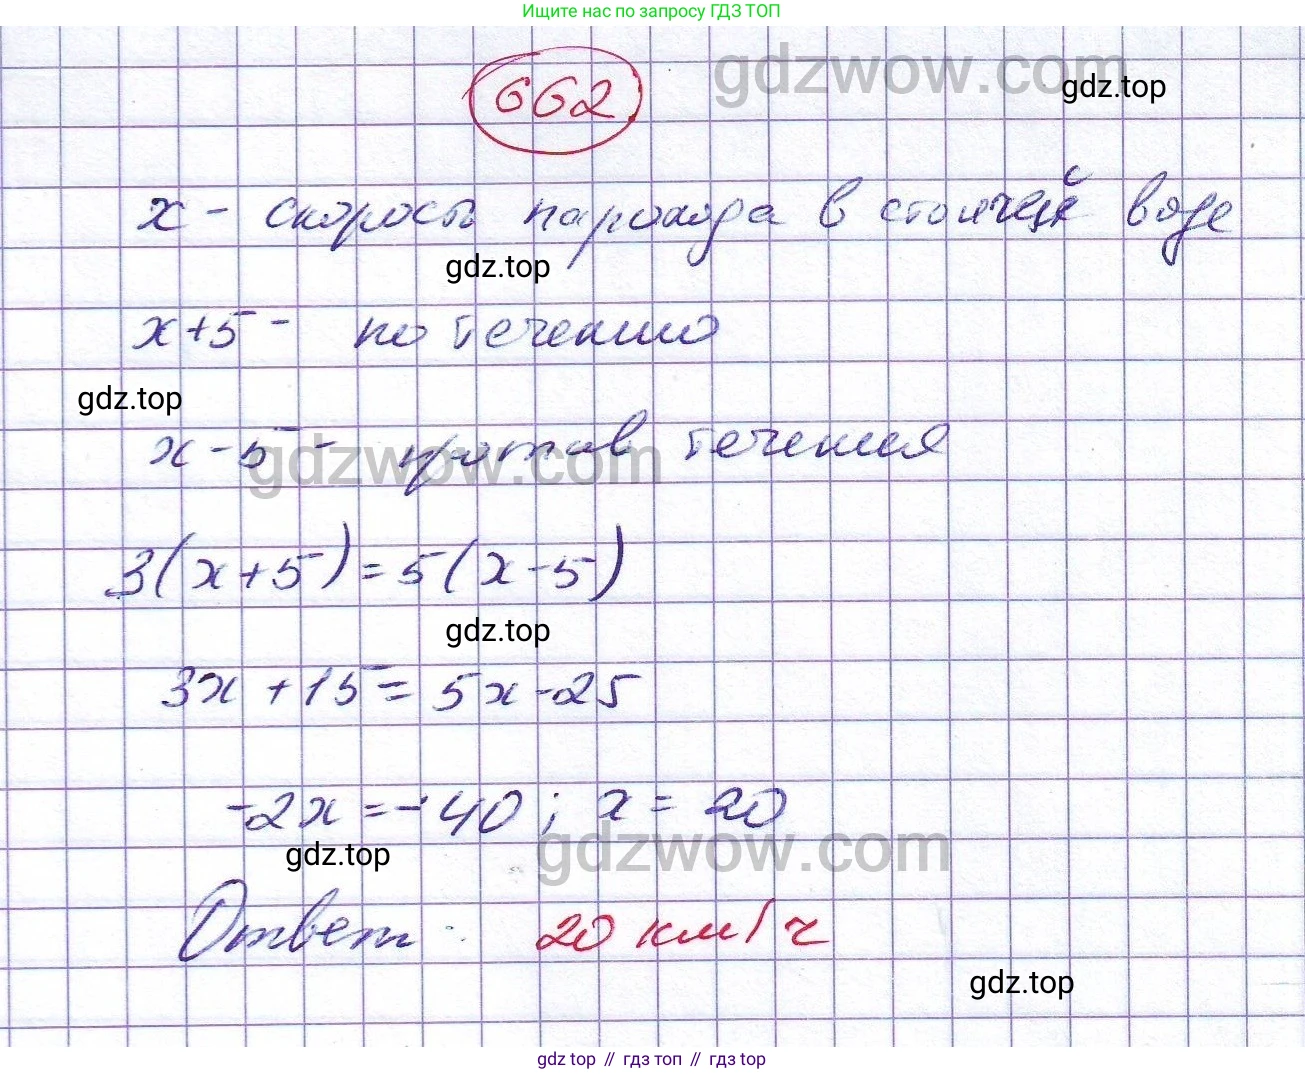 Ищите нас по запросу ГДЗ ТОП
gdzwow.com
662
gdz.top
x - скорость парохода в стоячей воде
gdz.top
x+5 - по течению
gdz.top
x-5 - против течения
gdzwow.com
3(x+5)=5(x-5)
gdz.top
3x+15=5x-25
-2x=-40; x=20
gdzwow.com
gdz.top
Ответ: 20 км/ч
gdz.top
gdz top // гдз топ // gdz top